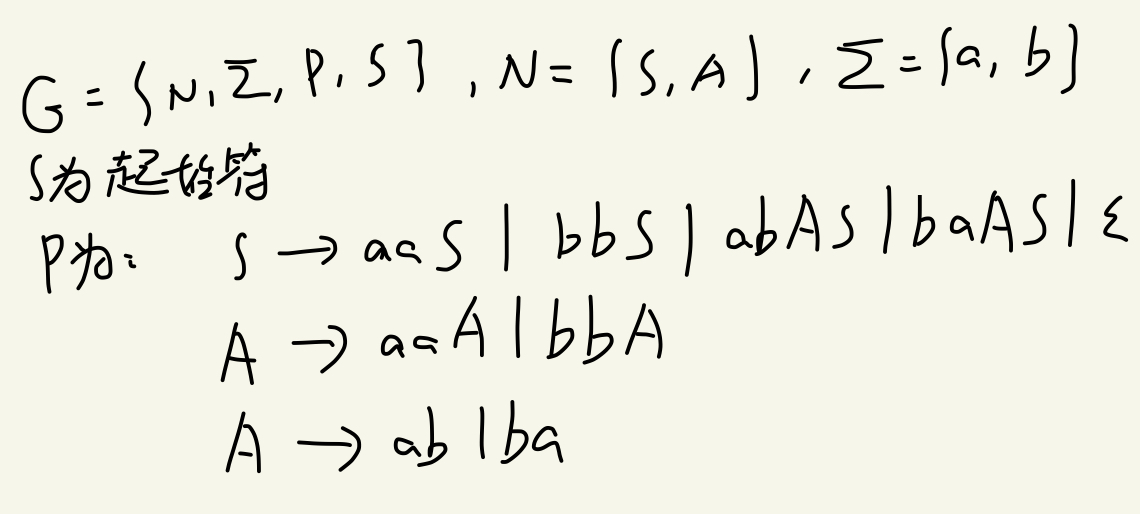 G = {N, Σ, P, S}, N = {S, A}, Σ = {a, b}
S为起始符
P为: S → aaS | bbS | abAS | baAS | ε
A → aaA | bbA
A → ab | ba